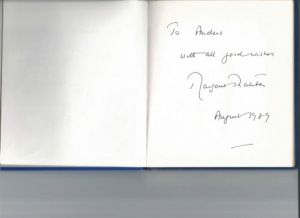 To Anders
with all good wishes
Margaret Thatcher
August 1989